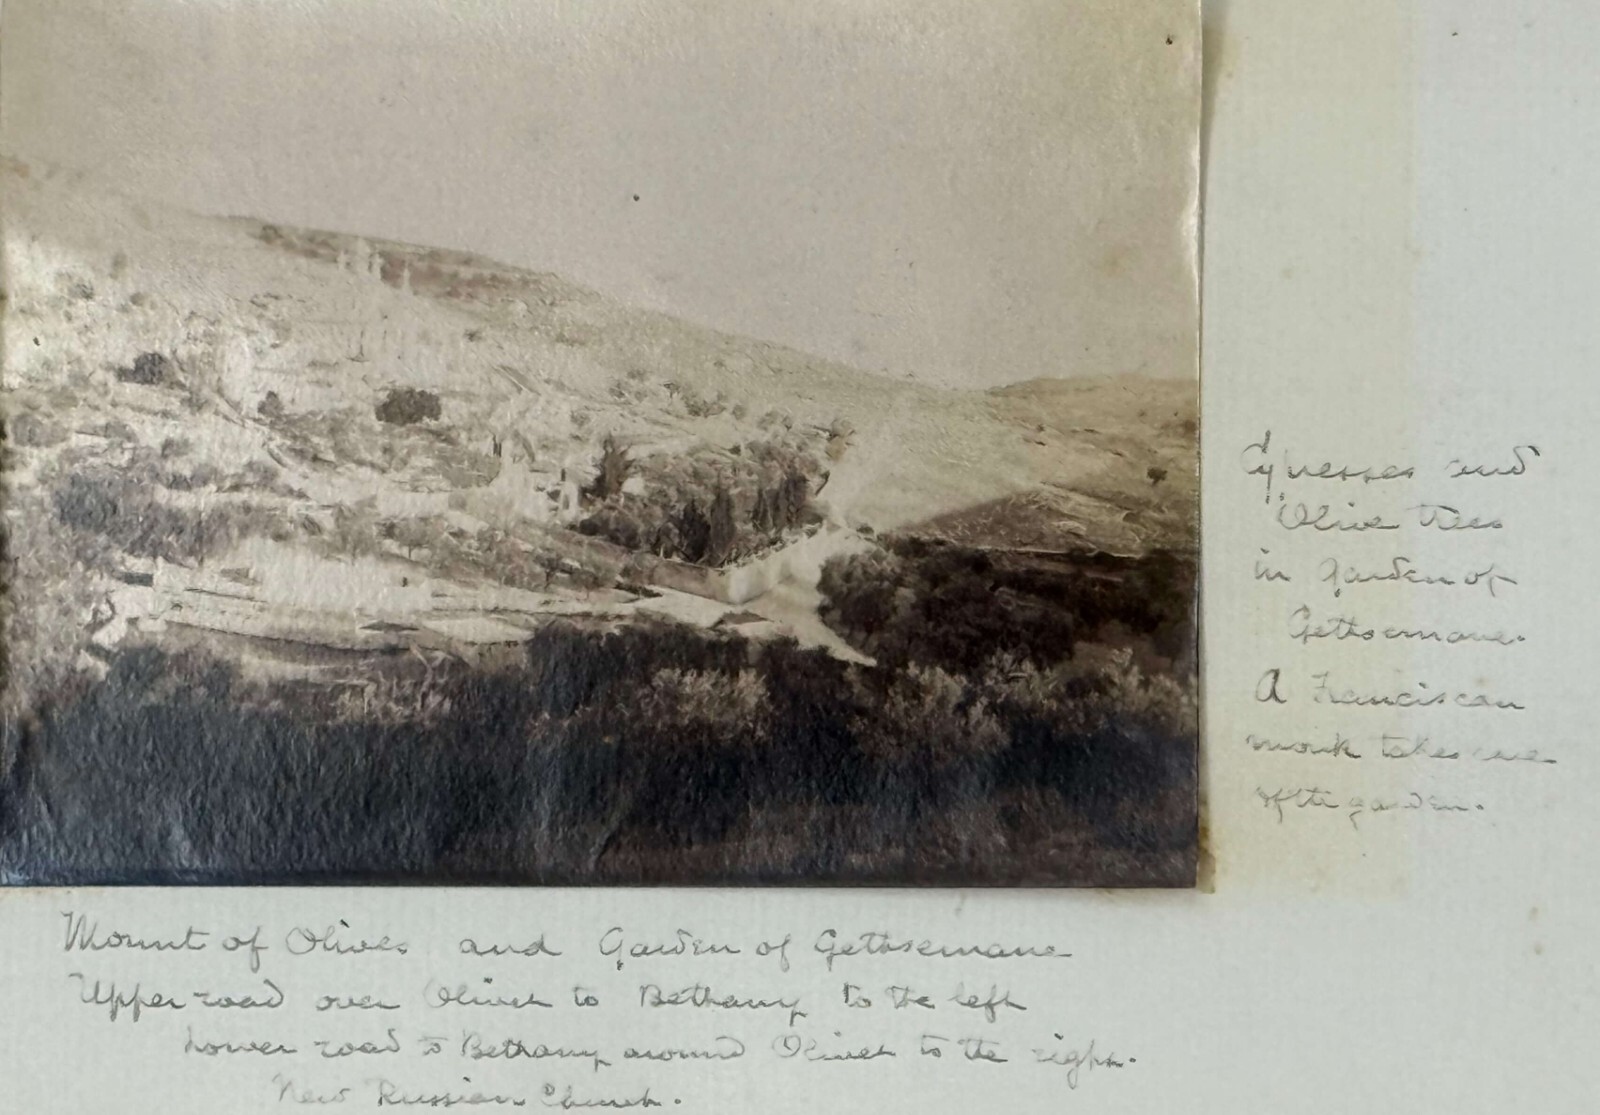 Cypresses and
Olive trees
in Garden of
Gethsemane.
A Franciscan
monk takes care
of the garden.
Mount of Olives and Garden of Gethsemane
Upper road over Olivet to Bethany to the left
Lower road to Bethany around Olivet to the right.
New Russian Church.